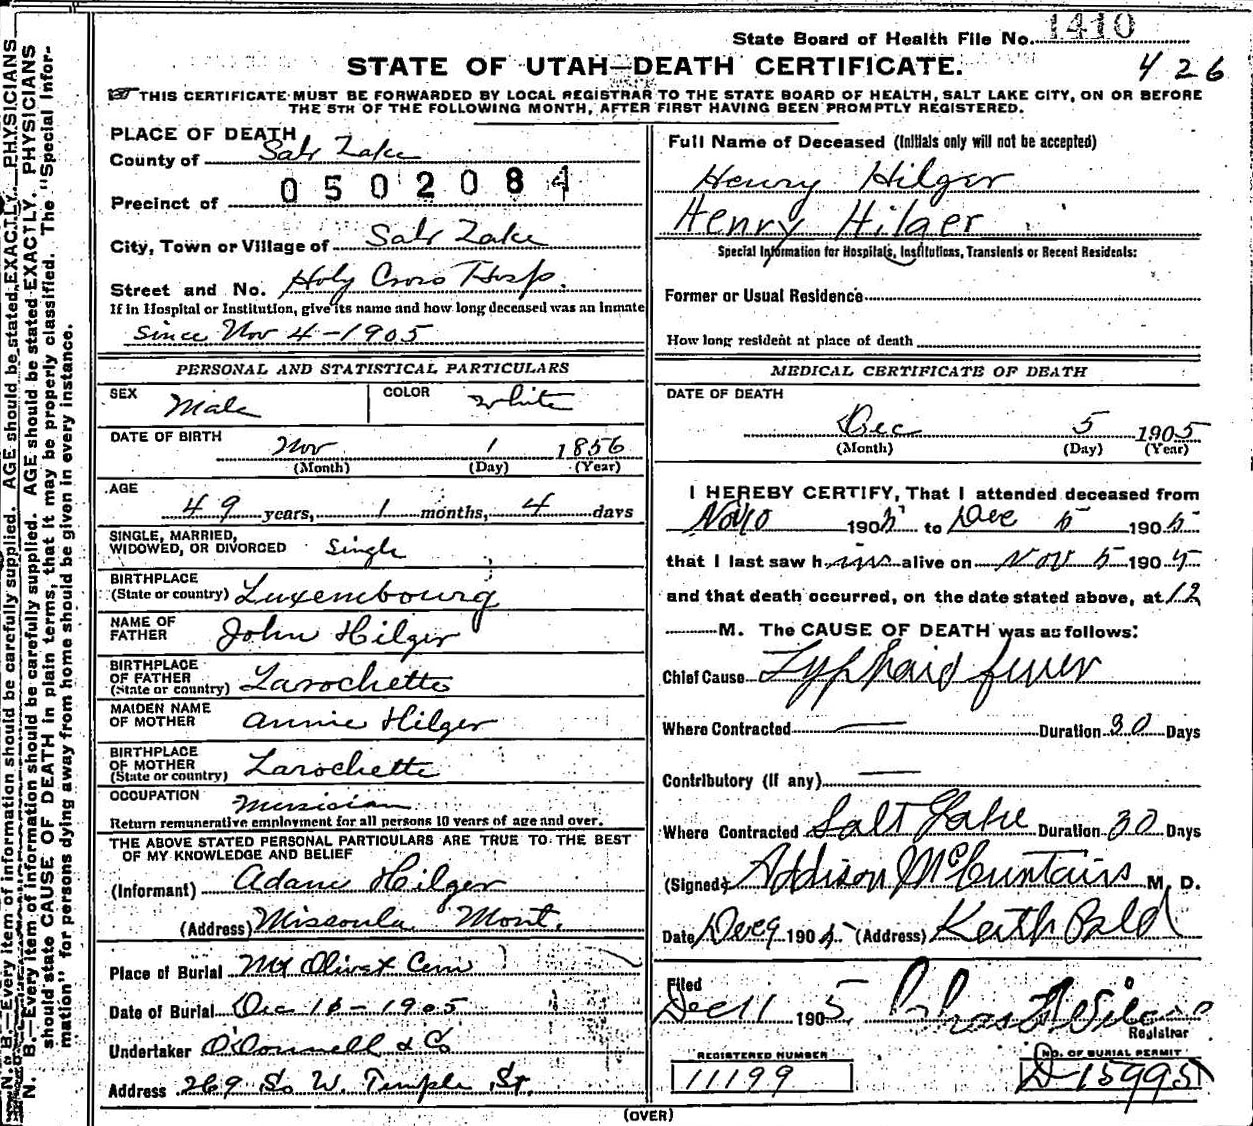 State Board of Health File No. 1410
STATE OF UTAH—DEATH CERTIFICATE.
426
THIS CERTIFICATE MUST BE FORWARDED BY LOCAL REGISTRAR TO THE STATE BOARD OF HEALTH, SALT LAKE CITY, ON OR BEFORE
THE 5TH OF THE FOLLOWING MONTH, AFTER FIRST HAVING BEEN PROMPTLY REGISTERED.
PLACE OF DEATH
County of Salt Lake
0502084
Precinct of
City, Town or Village of Salt Lake
Street and No. Holy Cross Hosp.
If in Hospital or Institution, give its name and how long deceased was an inmate
since Nov 4 - 1905
PERSONAL AND STATISTICAL PARTICULARS
SEX Male COLOR White
DATE OF BIRTH Nov 1 1856
(Month) (Day) (Year)
AGE
49 years, 1 months, 4 days
SINGLE, MARRIED,
WIDOWED, OR DIVORCED Single
BIRTHPLACE
(State or country) Luxembourg
NAME OF
FATHER John Hilger
BIRTHPLACE
OF FATHER
(State or country) Larochette
MAIDEN NAME
OF MOTHER Annie Hilger
BIRTHPLACE
OF MOTHER
(State or country) Larochette
OCCUPATION
Return remunerative employment for all persons 10 years of age and over.
THE ABOVE STATED PERSONAL PARTICULARS ARE TRUE TO THE BEST
OF MY KNOWLEDGE AND BELIEF
(Informant) Adam Hilger
(Address) Missoula Mont.
Place of Burial Mt Olivet Cem
Date of Burial Dec 10 - 1905
Undertaker O'Donnell & Co
Address 269 So W. Temple St.
Full Name of Deceased (Initials only will not be accepted)
Henry Hilger
Henry Hilger
Special Information for Hospitals, Institutions, Transients or Recent Residents:
Former or Usual Residence
How long resident at place of death
MEDICAL CERTIFICATE OF DEATH
DATE OF DEATH
Dec 5 1905
(Month) (Day) (Year)
I HEREBY CERTIFY, That I attended deceased from
Nov 10 1905 to Dec 5 1905
that I last saw him alive on Nov 5 1905
and that death occurred, on the date stated above, at 12
M. The CAUSE OF DEATH was as follows:
Chief Cause Typhoid fever
Where Contracted — Duration 30 Days
Contributory (if any) —
Where Contracted Salt Lake Duration 30 Days
(Signed) Addison M. D.
Date Dec 9 1905 (Address) Keith Bld
Filed
Dec 11 1905
Registrar
REGISTERED NUMBER
11199
NO. OF BURIAL PERMIT
D-15995
(OVER)
N. B.—Every item of information should be carefully supplied. AGE should be stated EXACTLY. PHYSICIANS
N. B.—Every item of information should be carefully supplied. AGE should be stated EXACTLY. PHYSICIANS
should state CAUSE OF DEATH in plain terms, that it may be properly classified. The "Special Infor-
mation" for persons dying away from home should be given in every instance.